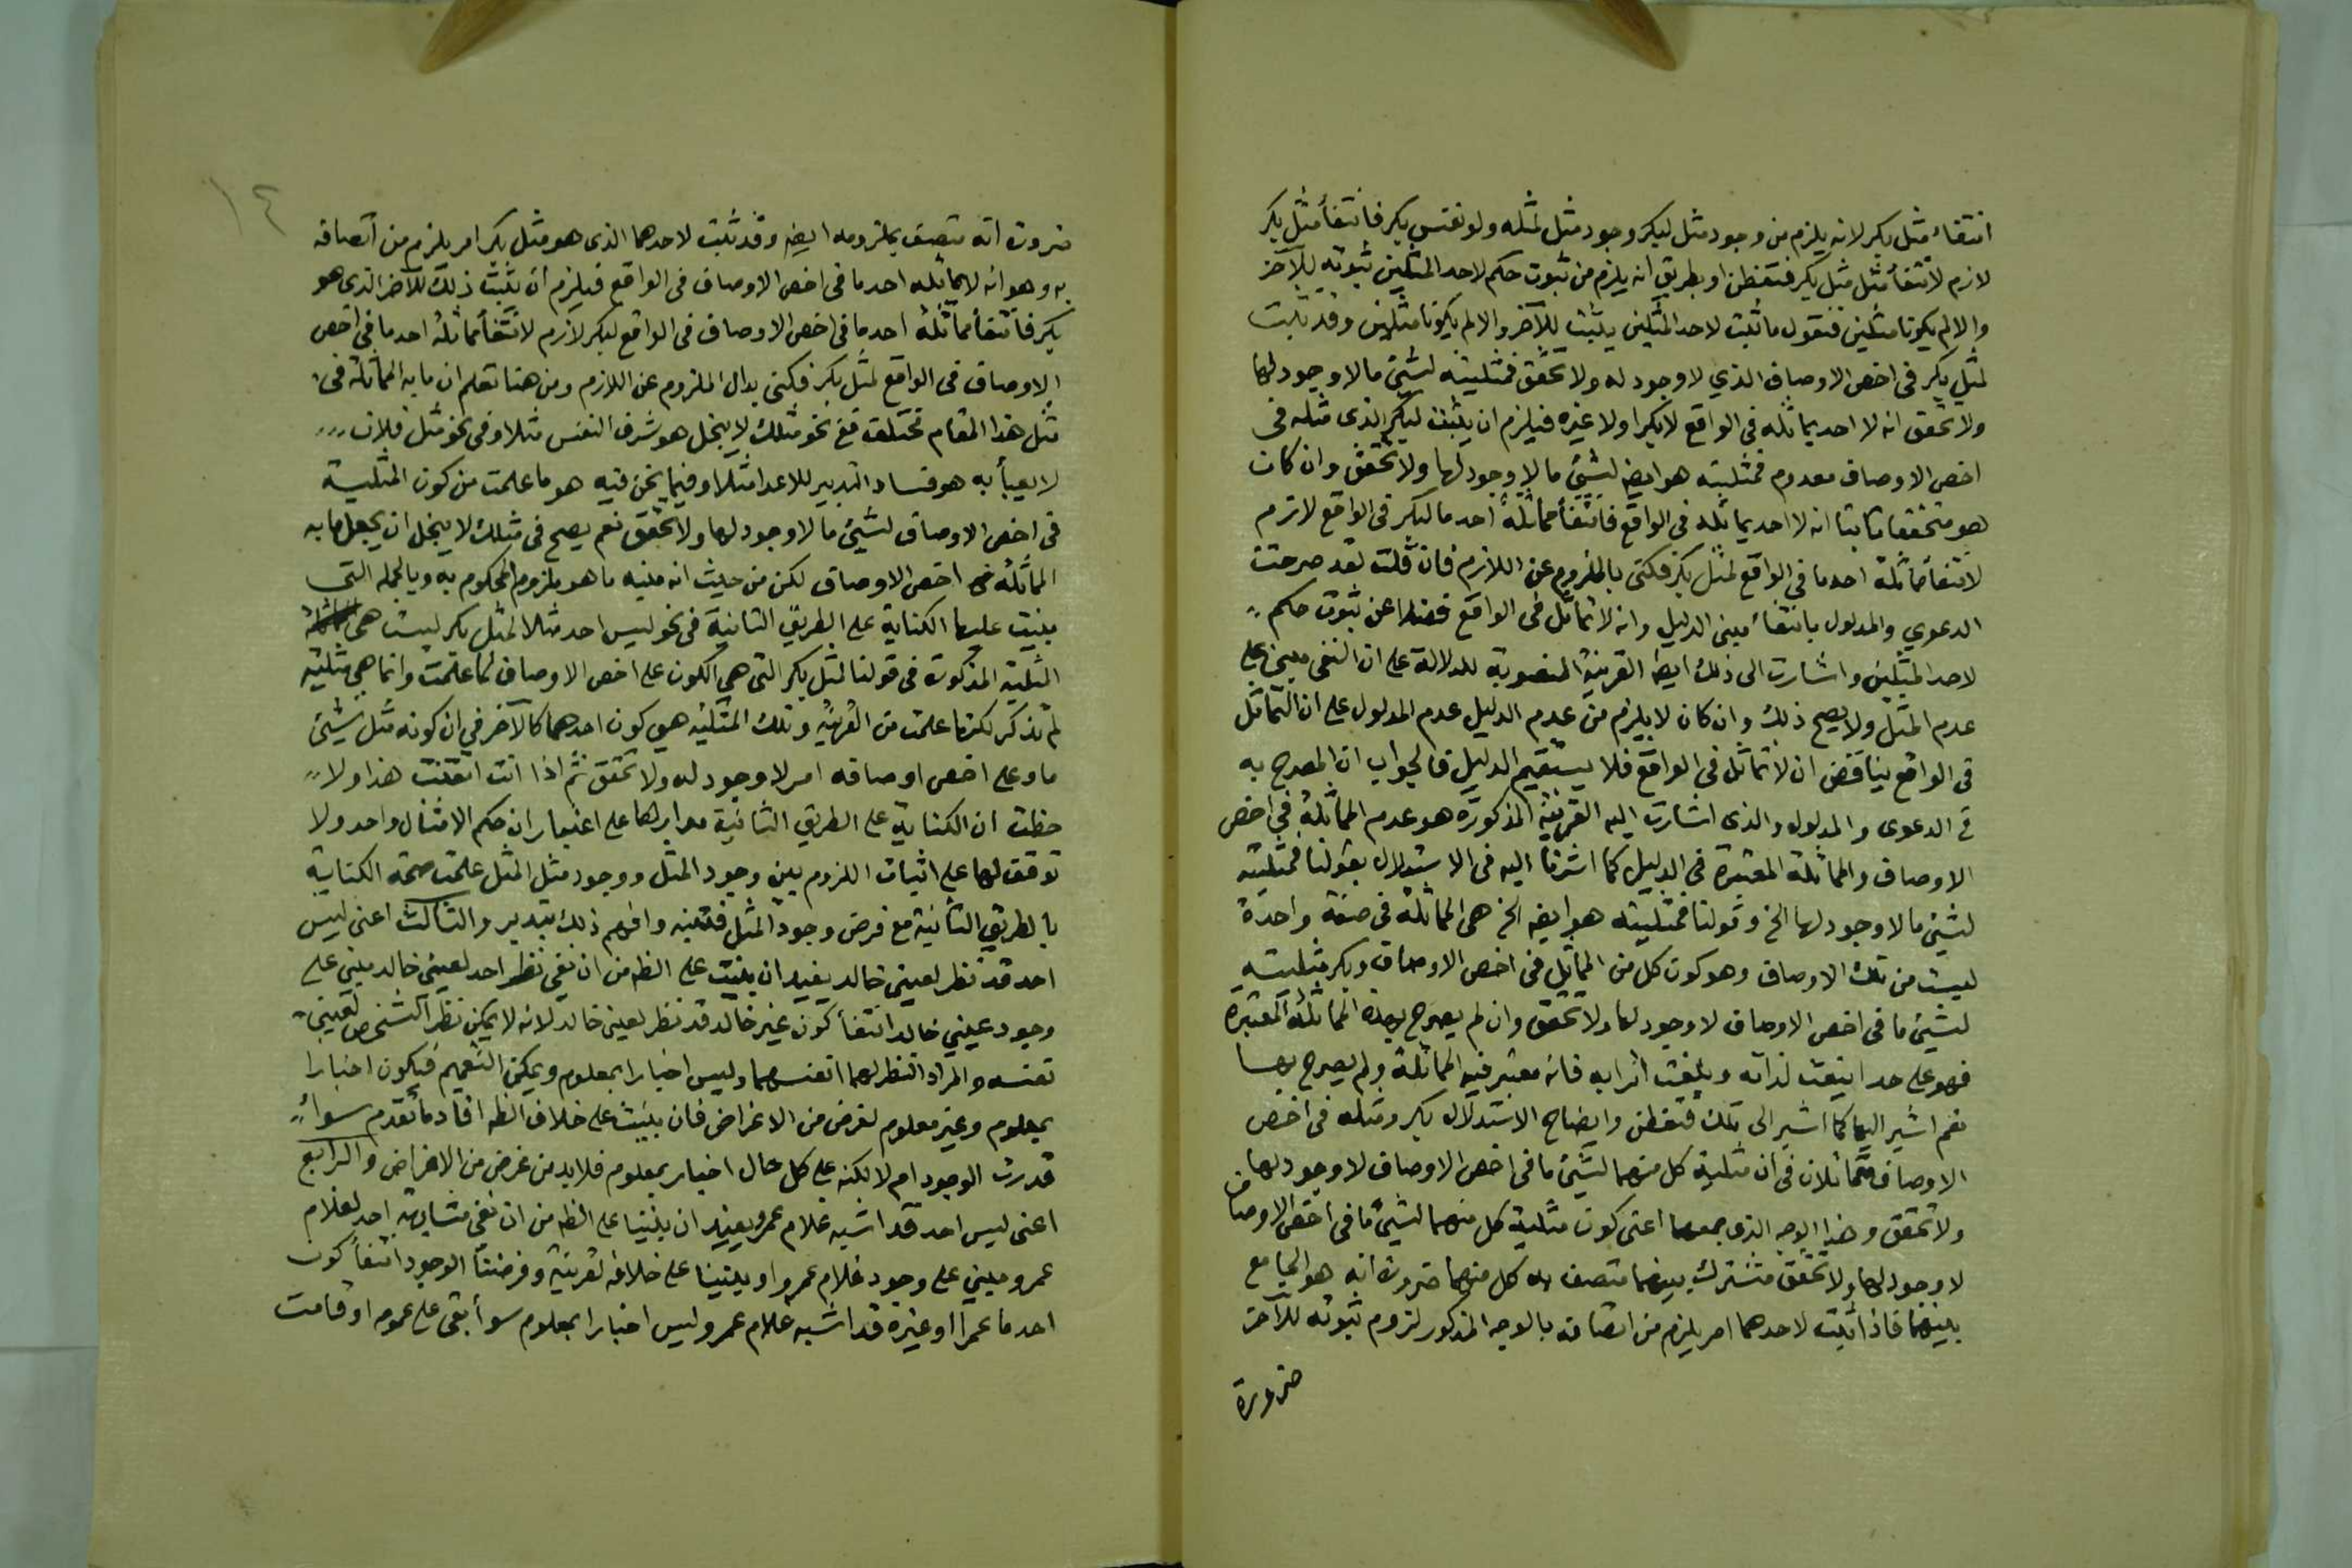 انتفاء مثل بكر لانه يلزم من وجود مثل لبكر وجود مثل لمثله ولو نفس بكر فانتفأ مثل بكر
لازم لانتفأ مثل مثل بكر فتفطن او بطريق انه يلزم من ثبوت حكم لاحد المثلين ثبوته للآخر
والا لم يكونا مثلين فنقول ما ثبت لاحد المثلين يثبت للآخر والا لم يكونا مثلين وقد ثبت
لمثل بكر فى اخص الاوصاف الذي لا وجود له ولا تحقق فمثليته لشئ ما لا وجود لها
ولا تحقق انه لا احد يماثله فى الواقع لا بكرا ولا غيره فيلزم ان يثبت لبكر الذى مثله فى
اخص الاوصاف معدوم فمثليته هو ايضا لشئ ما لا وجود لها ولا تحقق وان كان
هو متحققا ثابتا انه لا احد يماثله فى الواقع فانتفأ مماثلة احد ما لبكر فى الواقع لازم
لانتفأ مماثلة احد ما فى الواقع لمثل بكر فكنى بالملزوم عن اللازم فان قلت لقد صرحت
الدعوي والمدلول بانتفأ مبنى الدليل وانه لا تماثل فى الواقع فضلا عن ثبوت حكم
لاحد المثلين واشارت الى ذلك ايضا القرينة المنصوبة للدلالة على ان النفى مبني على
عدم المثل ولا يصح ذلك وان كان لا يلزم من عدم الدليل عدم المدلول على ان التماثل
فى الواقع يناقض ان لا تماثل فى الواقع فلا يستقيم الدليل فالجواب ان المصرح به
فى الدعوى والمدلول والذى اشارت اليه القرينة المذكورة هو عدم المماثلة فى اخص
الاوصاف والمماثلة المعتبرة فى الدليل كما اشرنا اليه فى الاستدلال بقولنا فمثليته
لشئ ما لا وجود لها الخ وقولنا فمثليته هو ايضا الخ هى المماثلة فى صفة واحدة
ليست من تلك الاوصاف وهو كون كل من المماثل فى اخص الاوصاف وبكر مثليته
لشئ ما فى اخص الاوصاف لا وجود لها ولا تحقق وان لم يصرح بهذه المماثلة المعتبرة
فهو على حد اينعت لداته وبلغت اترابه فانه معتبر فيه المماثلة ولم يصرح بها
نعم اشير اليها كما اشير الى تلك فتفطن وايضاح الاستدلال بكر ومثله فى اخص
الاوصاف متماثلان فى ان مثلية كل منهما لشئ ما فى اخص الاوصاف لا وجود لها
ولا تحقق وهذا الوجه الذى جمعهما اعنى كون مثلية كل منهما لشئ ما فى اخص الاوصاف
لا وجود لها ولا تحقق مشترك بينهما متصف به كل منهما ضرورة انه هو الجامع
بينهما فاذا ثبت لاحدهما امر يلزم من اتصافه بالوجه المذكور لزوم ثبوته للآخر
ضرورة
١٤
ضرورة انه متصف بملزومه ايضا وقد ثبت لاحدهما الذى هو مثل بكر امر يلزم من اتصافه
به وهو انه لا يماثله احد ما فى اخص الاوصاف فى الواقع فيلزم ان يثبت ذلك للآخر الذى هو
بكر فانتفأ مماثلة احد ما فى اخص الاوصاف فى الواقع لبكر لازم لانتفأ مماثلة احد ما فى اخص
الاوصاف فى الواقع لمثل بكر فكنى بدال الملزوم عن اللازم ومن هنا تعلم ان ما به المماثلة فى
مثل هذا المقام تختلف ففى نحو مثلك لا يبخل هو شرف النفس مثلا وفى نحو مثل فلان
لا يعبأ به هو فساد التدبير للاعدا مثلا وفيما نحن فيه هو ما علمت من كون المثلية
فى اخص الاوصاف لشئ ما لا وجود لها ولا تحقق نعم يصح فى مثلك لا يبخل ان يجعل ما به
المماثلة اخص الاوصاف لكن من حيث انه منبه ما هو ملزوم المحكوم به وبالجملة التى
بنيت عليها الكناية على الطريق الثانية فى نحو ليس احد مثلا لمثل بكر ليست هى
المثلية المذكورة فى قولنا لمثل بكر التى هى الكون على اخص الاوصاف لما علمت وانما هى مثلية
لم تذكر لكنها علمت من القرينة وتلك المثلية هى كون احدهما كالآخر فى ان كونه مثل شئ
ما وعلى اخص اوصافه امر لا وجود له ولا تحقق ثم اذا انت اتقنت هذا ولا
حظت ان الكناية على الطريق الثانية مدارها على اعتبار ان حكم الامثال واحد ولا
توقف لها على اثبات اللزوم بين وجود المثل ووجود مثل المثل علمت صحة الكناية
بالطريق الثانية مع فرض وجود المثل فتنبه وافهم ذلك بتدبر والثالث اعنى ليس
احد قد نظر لعينى خالد يفيد ان بنيت على الظه من ان نفى نظر احد لعينى خالد مبنى على
وجود عينى خالد انتفأ كون غير خالد قد نظر لعينى خالد لانه لا يمكن نظر الشخص لعينى
نفسه والمراد النظر لهما انفسهما وليس اخبارا بمعلوم ويمكن التعميم فيكون اخبارا
بمعلوم وغير معلوم لغرض من الاغراض فان بنيت على خلاف الظه افاد ما تقدم سوأ
قدرت الوجود ام لا لكنه على كل حال اخبار بمعلوم فلا بد من غرض من الاغراض والرابع
اعنى ليس احد قد اشبه غلام عمرو يفيد ان بنينا على الظه من ان نفى مشابهة احد لغلام
عمرو مبنى على وجود غلام عمرو او بنينا على خلافه لقرينة وفرضنا الوجود انتفأ كون
احد ما عمرا او غيره قد اشبه غلام عمرو وليس اخبارا بمعلوم سوأ بقى على عمومه او قامت